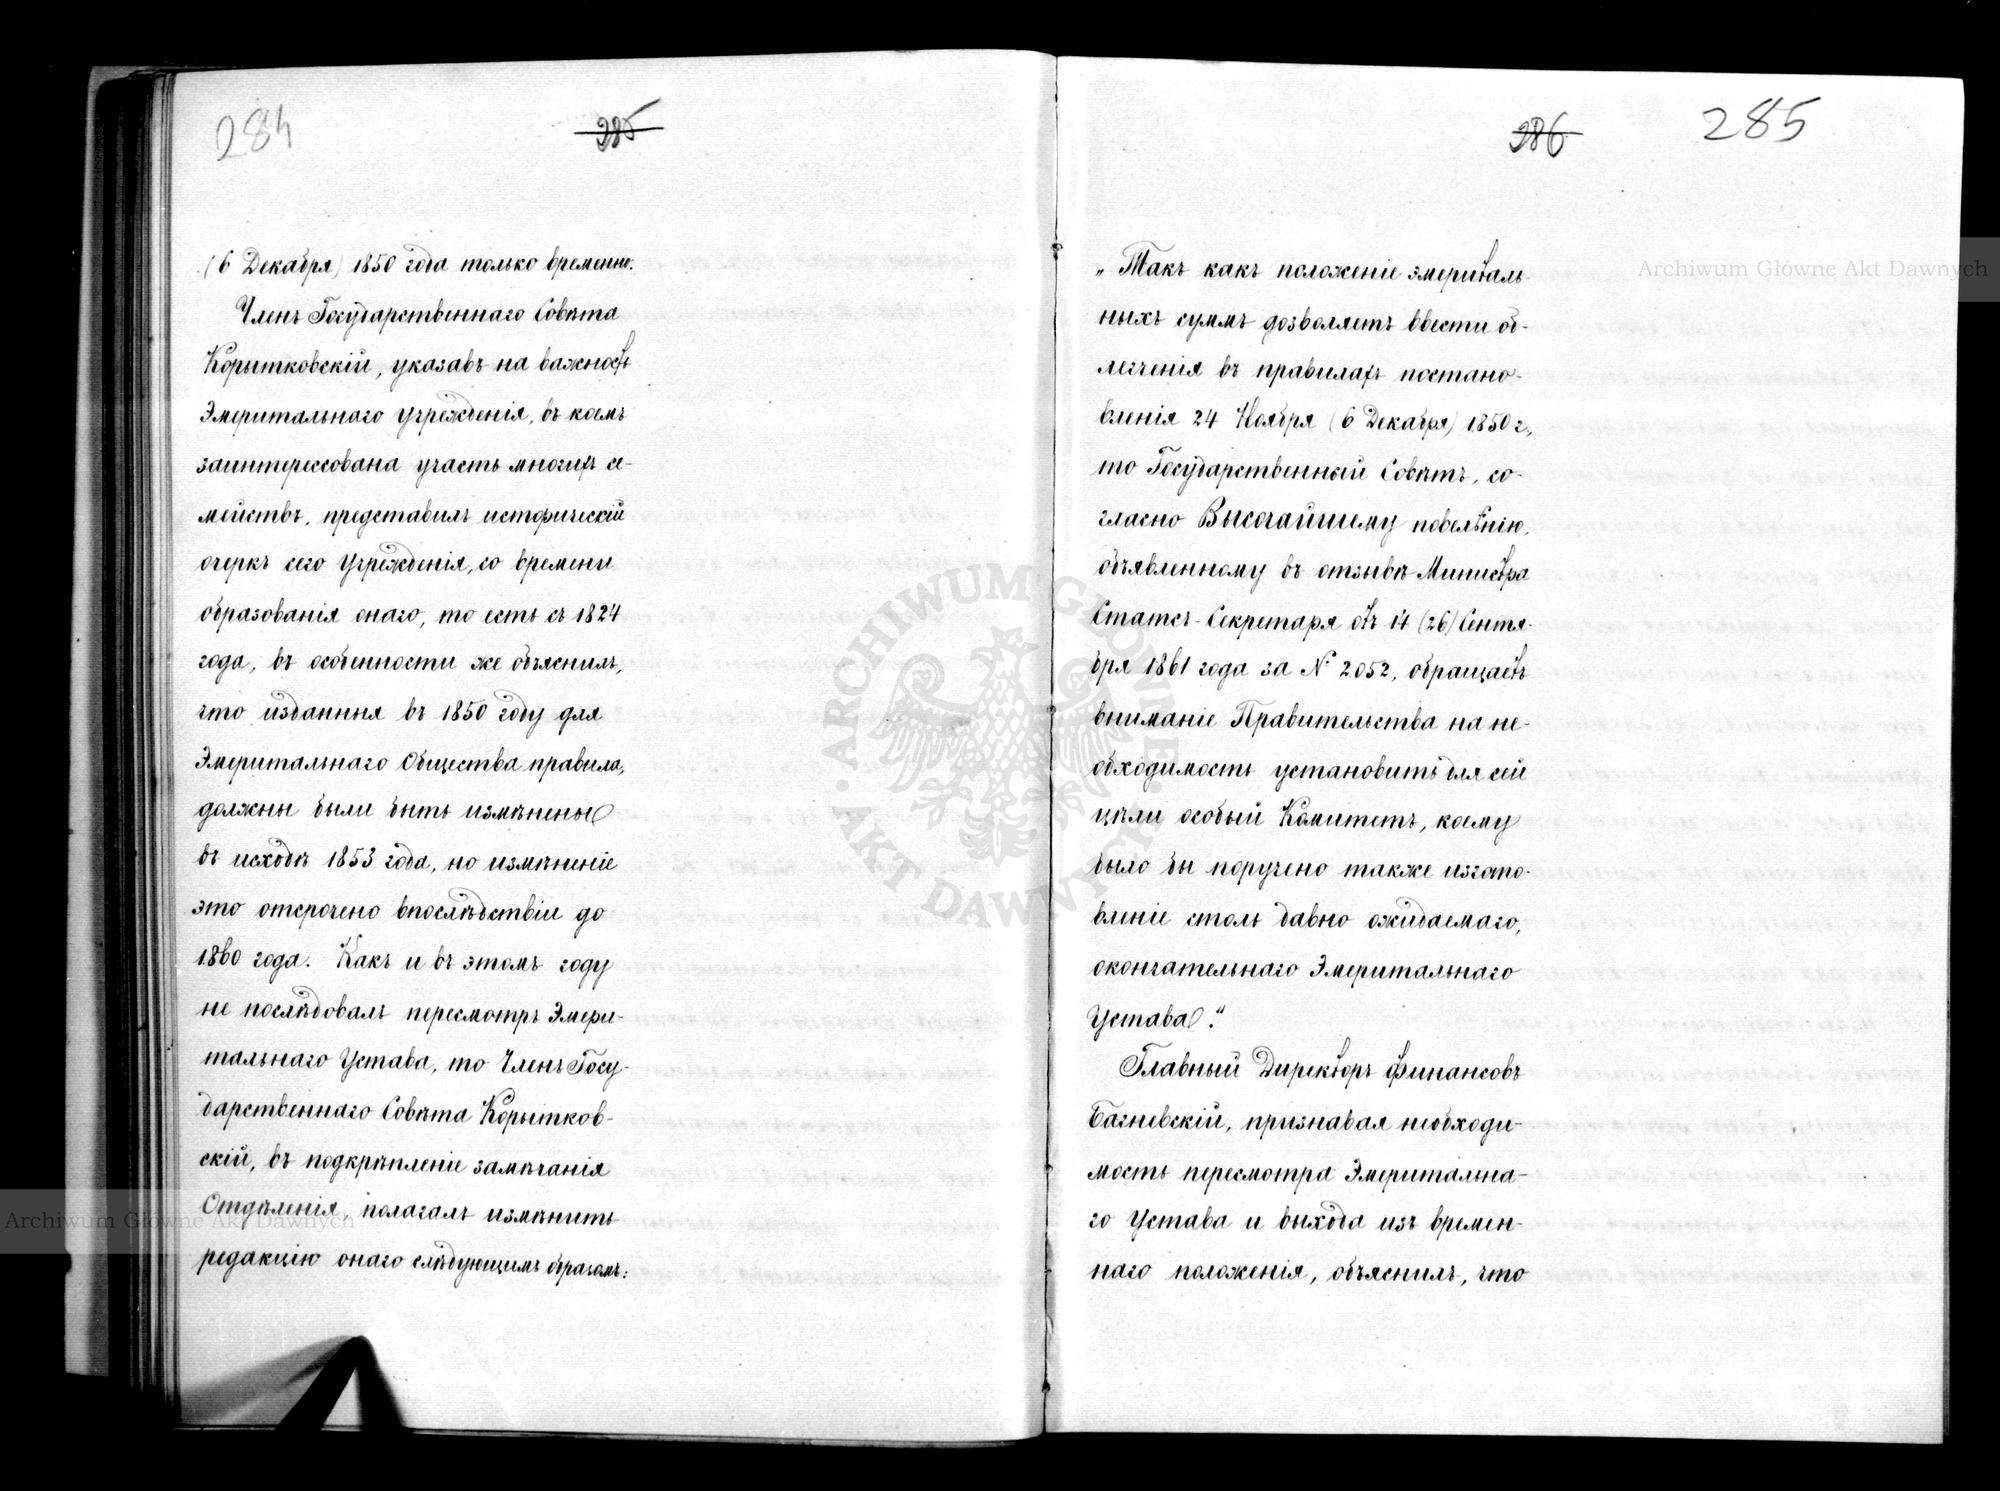 284
285
(6 Декабря) 1850 года только временно.
Членъ Государственнаго Совѣта
Корытковскій, указавъ на важность
Эмеритальнаго Учрежденія, въ коемъ
заинтересована участь многихъ се-
мействъ, представилъ историческій
очеркъ сего Учрежденія, со времени
образованія онаго, то есть съ 1824
года, въ особенности же объяснилъ,
что изданныя въ 1850 году для
Эмеритальнаго Общества правила,
должны были быть измѣнены
въ исходѣ 1853 года, но измѣненіе
это отсрочено впослѣдствіи до
1860 года. Какъ и въ этомъ году
не послѣдовалъ пересмотръ Эмери-
тальнаго Устава, то Членъ Госу-
дарственнаго Совѣта Корытков-
скій, въ подкрѣпленіе замѣчанія
Отдѣленія, полагалъ измѣнить
редакцію онаго слѣдующимъ образомъ:
286
285
„Такъ какъ положеніе эмериталь-
ныхъ суммъ дозволяетъ ввести об-
легченія въ правилахъ постано-
вленія 24 Ноября (6 Декабря) 1850 г.,
то Государственный Совѣтъ, со-
гласно Высочайшему повелѣнію,
объявленному въ отзывѣ Министра
Статсъ-Секретаря отъ 14 (26) Сентя-
бря 1861 года за № 2052, обращаетъ
вниманіе Правительства на не-
обходимость установить для сей
цѣли особый Комитетъ, коему
было бы поручено также изгото-
вленіе столь давно ожидаемаго,
окончательнаго Эмеритальнаго
Устава."
Главный Директоръ Финансовъ
Багневскій, признавая необходи-
мость пересмотра Эмеритальна-
го Устава и выхода изъ времен-
наго положенія, объяснилъ, что
Archiwum Główne Akt Dawnych
Archiwum Główne Akt Dawnych
ARCHIWUM GŁÓWNE AKT DAWNYCH